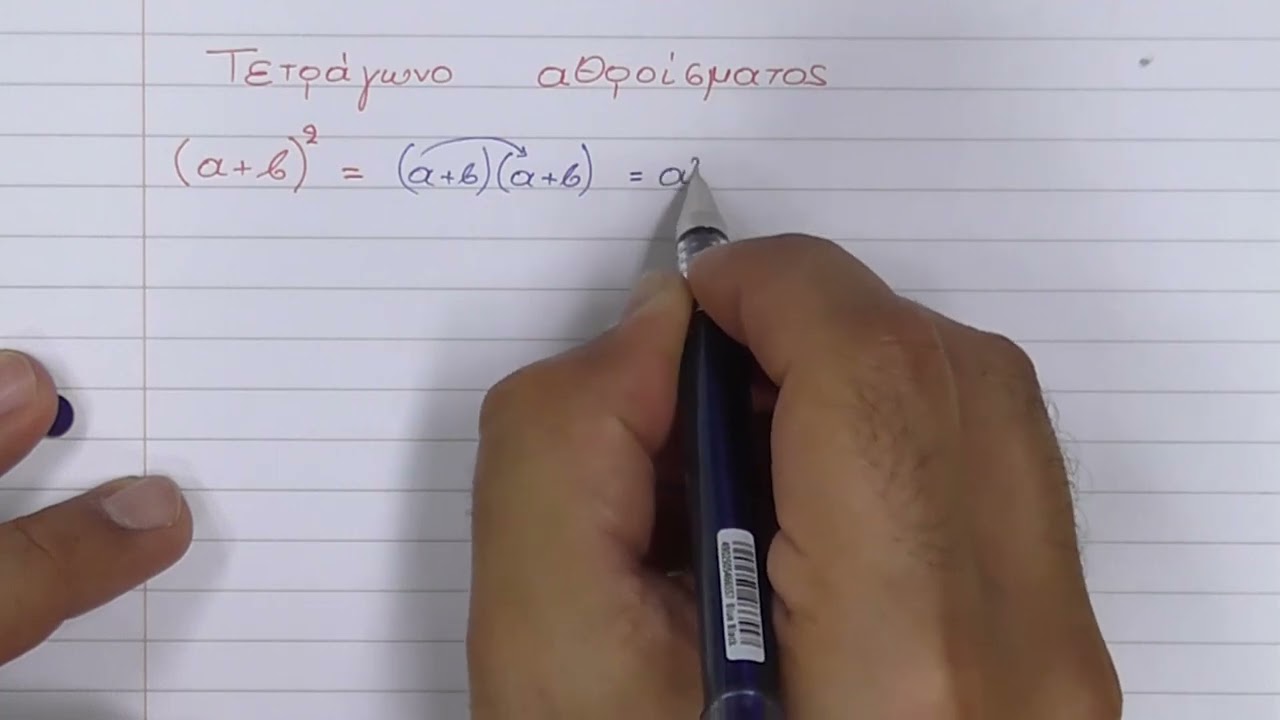 Τετράγωνο αθροίσματος
(α+β)² = (α+β)(α+β) = α²